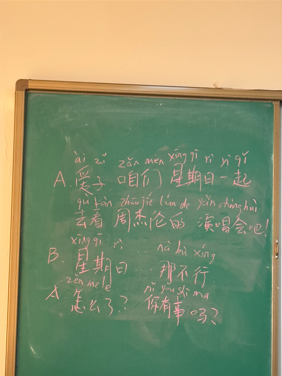 ài zǐ zán men xīng qī rì yì qǐ
A. 爱子 咱们 星期日一起
qù kàn zhōu jié lún de yǎn chàng huì
去看 周杰伦的 演唱会吧!
xīng qī rì nà bù xíng
B. 星期日 ... 那不行
zěn me le nǐ yǒu shì ma
A 怎么了? 你有事吗?